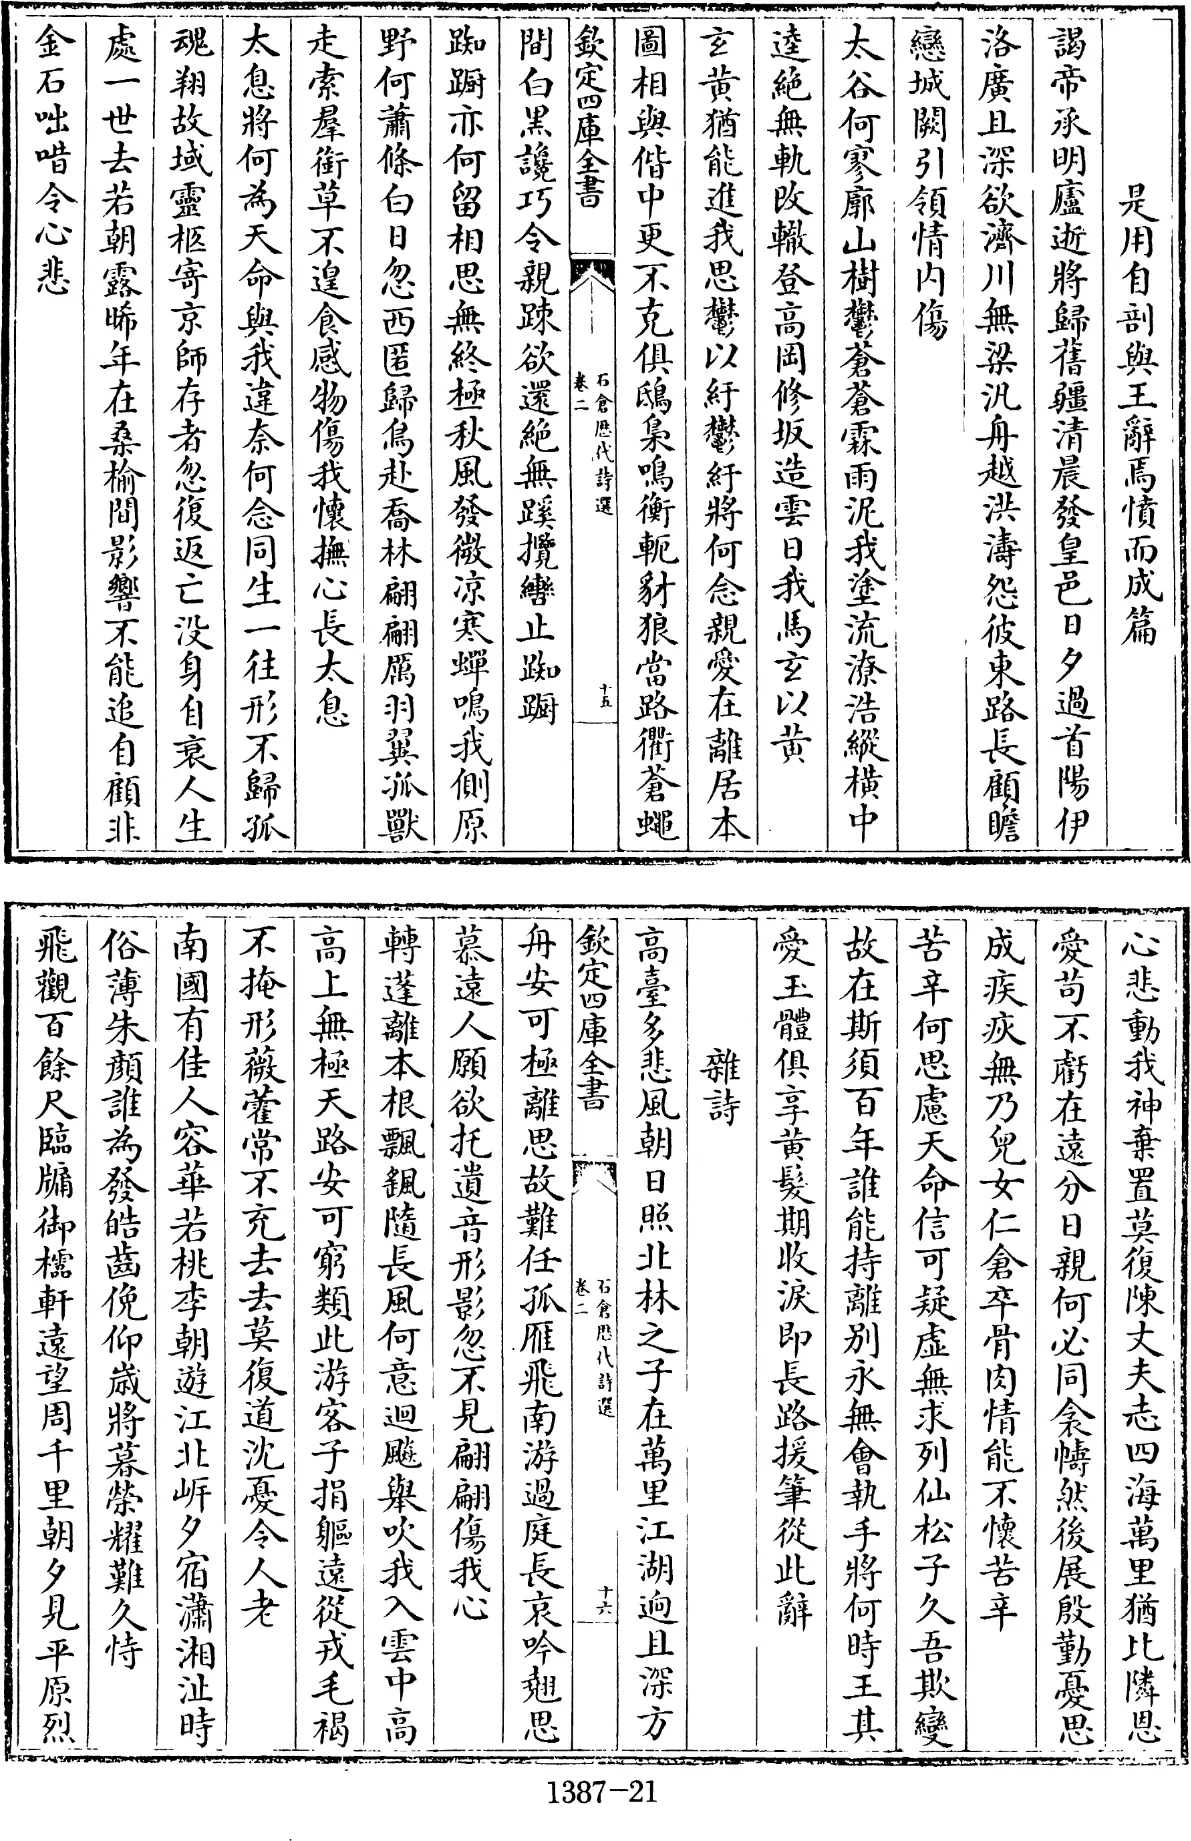 是用自剖與王辭焉憤而成篇
謁帝承明廬逝將歸舊疆清晨發皇邑日夕過首陽伊
洛廣且深欲濟川無梁汎舟越洪濤怨彼東路長顧瞻
戀城闕引領情内傷
太谷何寥廓山樹鬱蒼蒼霖雨泥我塗流潦浩縱横中
逵絶無軌改轍登高岡修坂造雲日我馬玄以黄
玄黄猶能進我思鬱以紆鬱紆將何念親愛在離居本
圖相與偕中更不克俱鴟梟鳴衡軛豺狼當路衢蒼蠅
欽定四庫全書
石倉歴代詩選
卷二
十五
間白黒讒巧令親踈欲還絶無蹊攬轡止踟蹰
踟蹰亦何留相思無終極秋風發微凉寒蟬鳴我側原
野何蕭條白日忽西匿歸鳥赴喬林翩翩厲羽翼孤獸
走索羣銜草不遑食感物傷我懷撫心長太息
太息將何為天命與我違奈何念同生一往形不歸孤
魂翔故域靈柩寄京師存者忽復返亡没身自衰人生
處一世去若朝露晞年在桑榆間影響不能追自顧非
金石咄唶令心悲
心悲動我神棄置莫復陳丈夫志四海萬里猶比隣恩
愛苟不虧在遠分日親何必同衾幬然後展殷勤憂思
成疾疢無乃兒女仁倉卒骨肉情能不懷苦辛
苦辛何思慮天命信可疑虛無求列仙松子久吾欺變
故在斯須百年誰能持離别永無會執手將何時王其
愛玉體俱享黄髮期收淚即長路援筆從此辭
雜詩
高臺多悲風朝日照北林之子在萬里江湖逈且深方
欽定四庫全書
石倉歴代詩選
卷二
十六
舟安可極離思故難任孤雁飛南游過庭長哀吟翹思
慕遠人願欲托遺音形影忽不見翩翩傷我心
轉蓬離本根飄颻隨長風何意迴飈舉吹我入雲中高
高上無極天路安可窮類此游客子捐軀遠從戎毛褐
不掩形薇藿常不充去去莫復道沈憂令人老
南國有佳人容華若桃李朝遊江北㟁夕宿瀟湘沚時
俗薄朱顔誰為發皓齒俛仰歲將暮榮耀難久恃
飛觀百餘尺臨牖御櫺軒遠望周千里朝夕見平原烈
1387-21